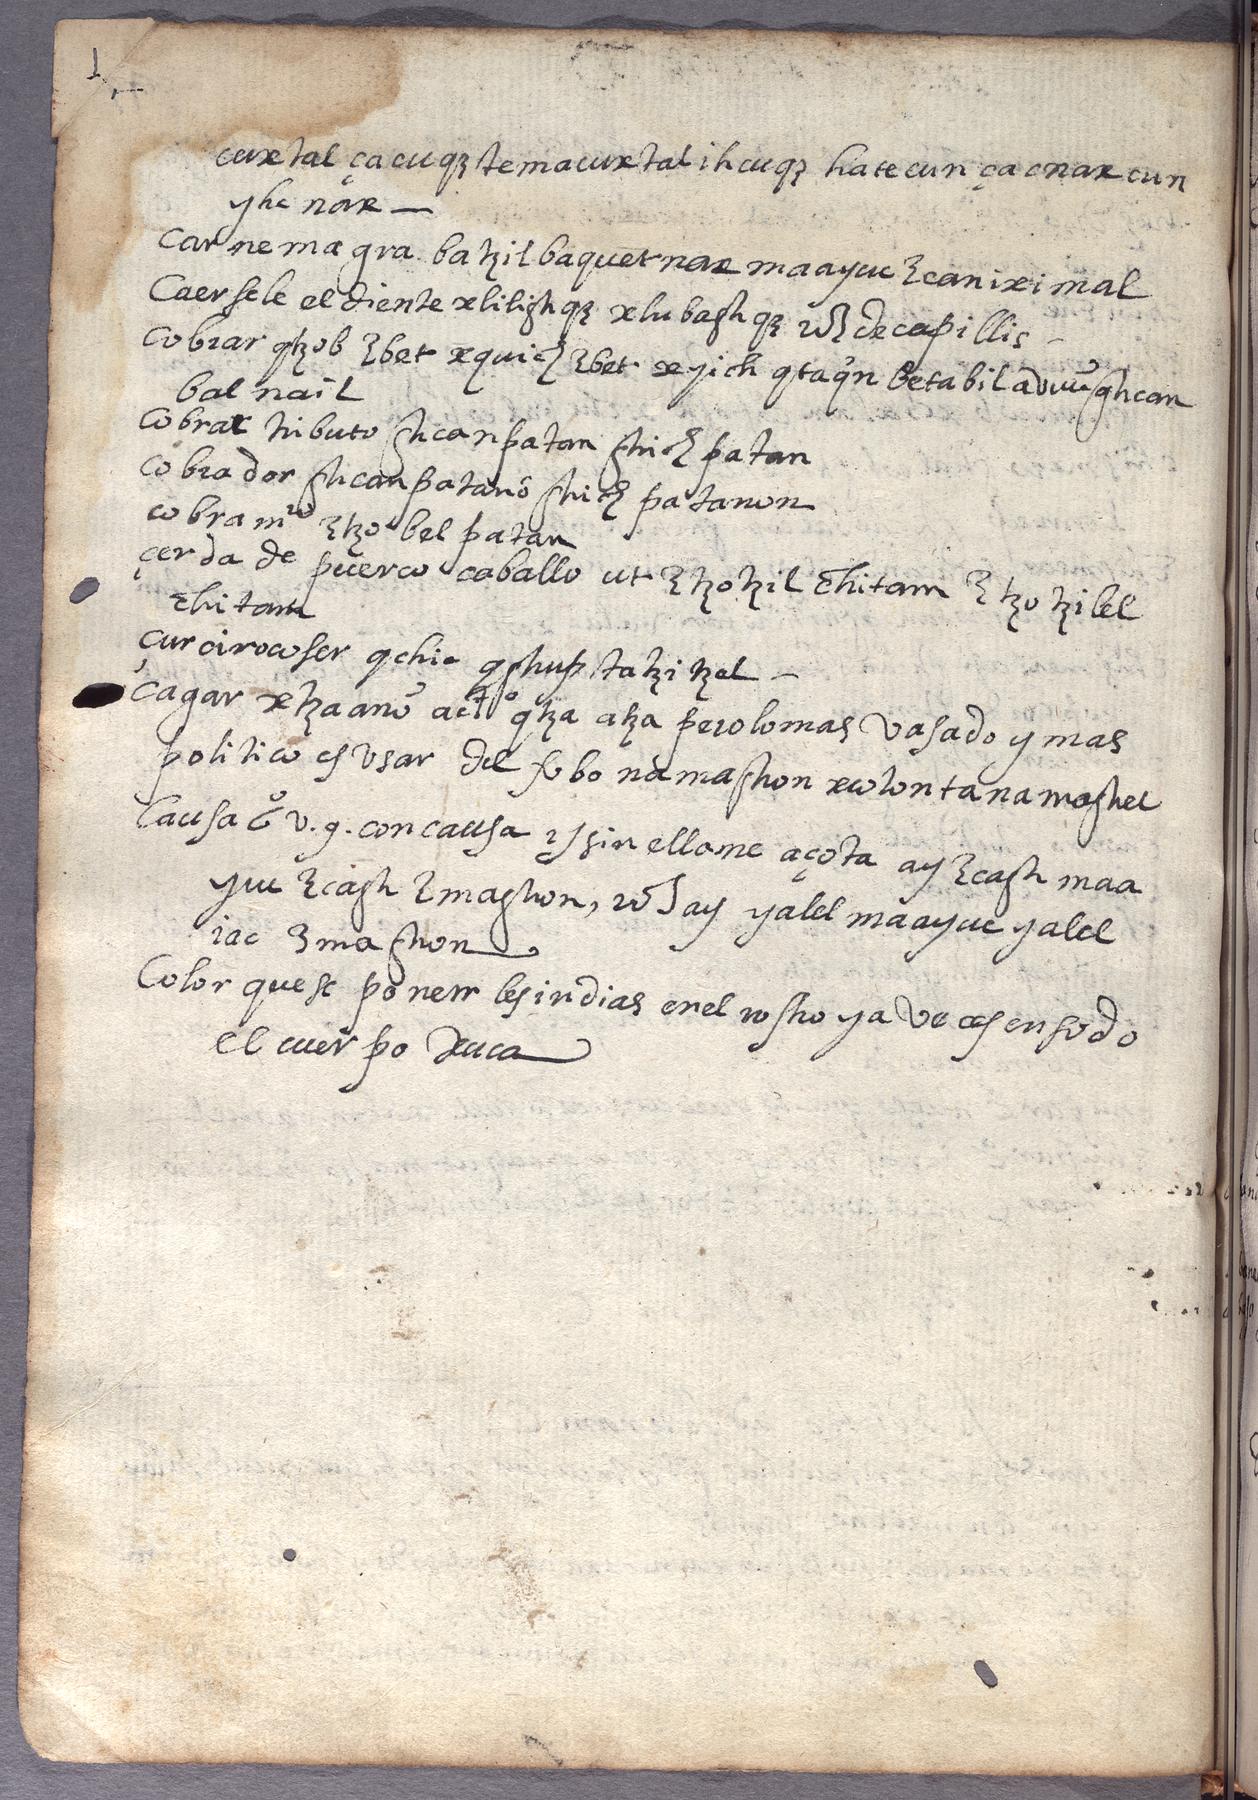 1
curtal çacuqꝫ temacurtal ihcuqꝫ hatecun çacnax cun
yhc nax —
Carne magra batzil baquetnax maayuc ꜫcanixi mal
Caersele el diente xlilighqꝫ xlubaghqꝫ de capillis —
cobrar qtzob ꜫbet xquich ꜫbet xyich qtaq̃n betabil ghcan
bal nail
cobrar tributo ghcanpatan ghich patan
cobrador ghcanpatanõ ghich patanon
cobram.to ꜫtzobel patan
çerda de puerco caballo ut ꜫtzotzil chitam ꜫtzotzilel
chitam
çurcir o coser qchic qghup tatzitzel —
çagar xtzaanõ act.o qtza atza pero lo mas vasado y mas
politico es vsar del fo bo namaghon xcolontanamaghel
Causa v. g. con causa y sin ella me açota ay ꜫcagh maa
yuc ꜫcagh ꜫmaghon, ay yalel maayuc yalel
iac ꜫmaghon
Color que se ponen las indias en el rostro y a veces en todo
el cuerpo xuca